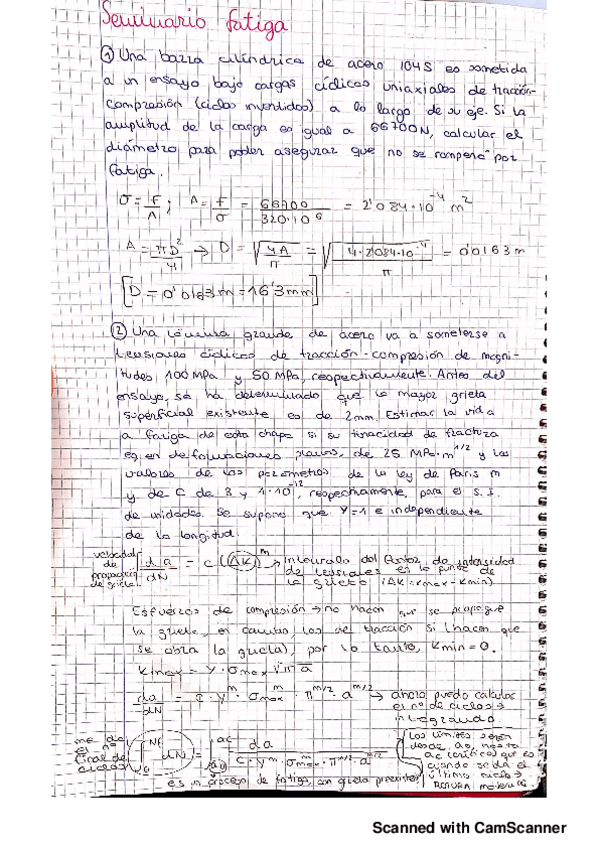 Seminario fatiga
① Una barra cilíndrica de acero 1045 es sometida
a un ensayo bajo cargas cíclicas uniaxiales de tracción-
compresión (ciclos invertidos) a lo largo de su eje. Si la
amplitud de la carga es igual a 66700N, calcular el
diámetro para poder asegurar que no se romperá por
fatiga.
σ = F/A ; A = F/σ = 66700/320·10⁶ = 2'084·10⁻⁴ m²
A = πD²/4 → D = √(4A/π) = √(4·2'084·10⁻⁴/π) = 0'0163 m
[D = 0'0163 m = 16'3 mm]
② Una lámina grande de acero va a someterse a
tensiones cíclicas de tracción-compresión de magni-
tudes 100 MPa y 50 MPa, respectivamente. Antes del
ensayo, se ha determinado que la mayor grieta
superficial existente es de 2mm. Estimar la vida
a fatiga de esta chapa si su tenacidad de fractura
es, en deformaciones planas, de 25 MPa·m^1/2 y los
valores de los parámetros de la ley de Paris m
y de C de 3 y 1·10⁻¹², respectivamente, para el S.I.
de unidades. Se supone que Y=1 e independiente
de la longitud.
velocidad de propagación de grieta ← da/dN = C (ΔK)^m → Intervalo del factor de intensidad
de tensiones en la punta de
la grieta (ΔK = Kmax - Kmin)
Esfuerzos de compresión → no hacen que se propague
la grieta, en cambio, los de tracción sí (hacen que
se abra la grieta), por lo tanto, Kmin = 0.
Kmax = Y · σmax √π a
da/dN = C · Y^m · σmax^m · π^m/2 · a^m/2 → ahora puedo calcular
el nº de ciclos →
integrando
me da el nº final de ciclos ∫₀^Nf dN = ∫a₀^ac da / C · Y^m · σmax^m · π^m/2 · a^m/2
Los límites serán
desde a₀, hasta
ac (crítica) que es
cuando se da el
último ciclo →
es un proceso de fatiga, con grieta